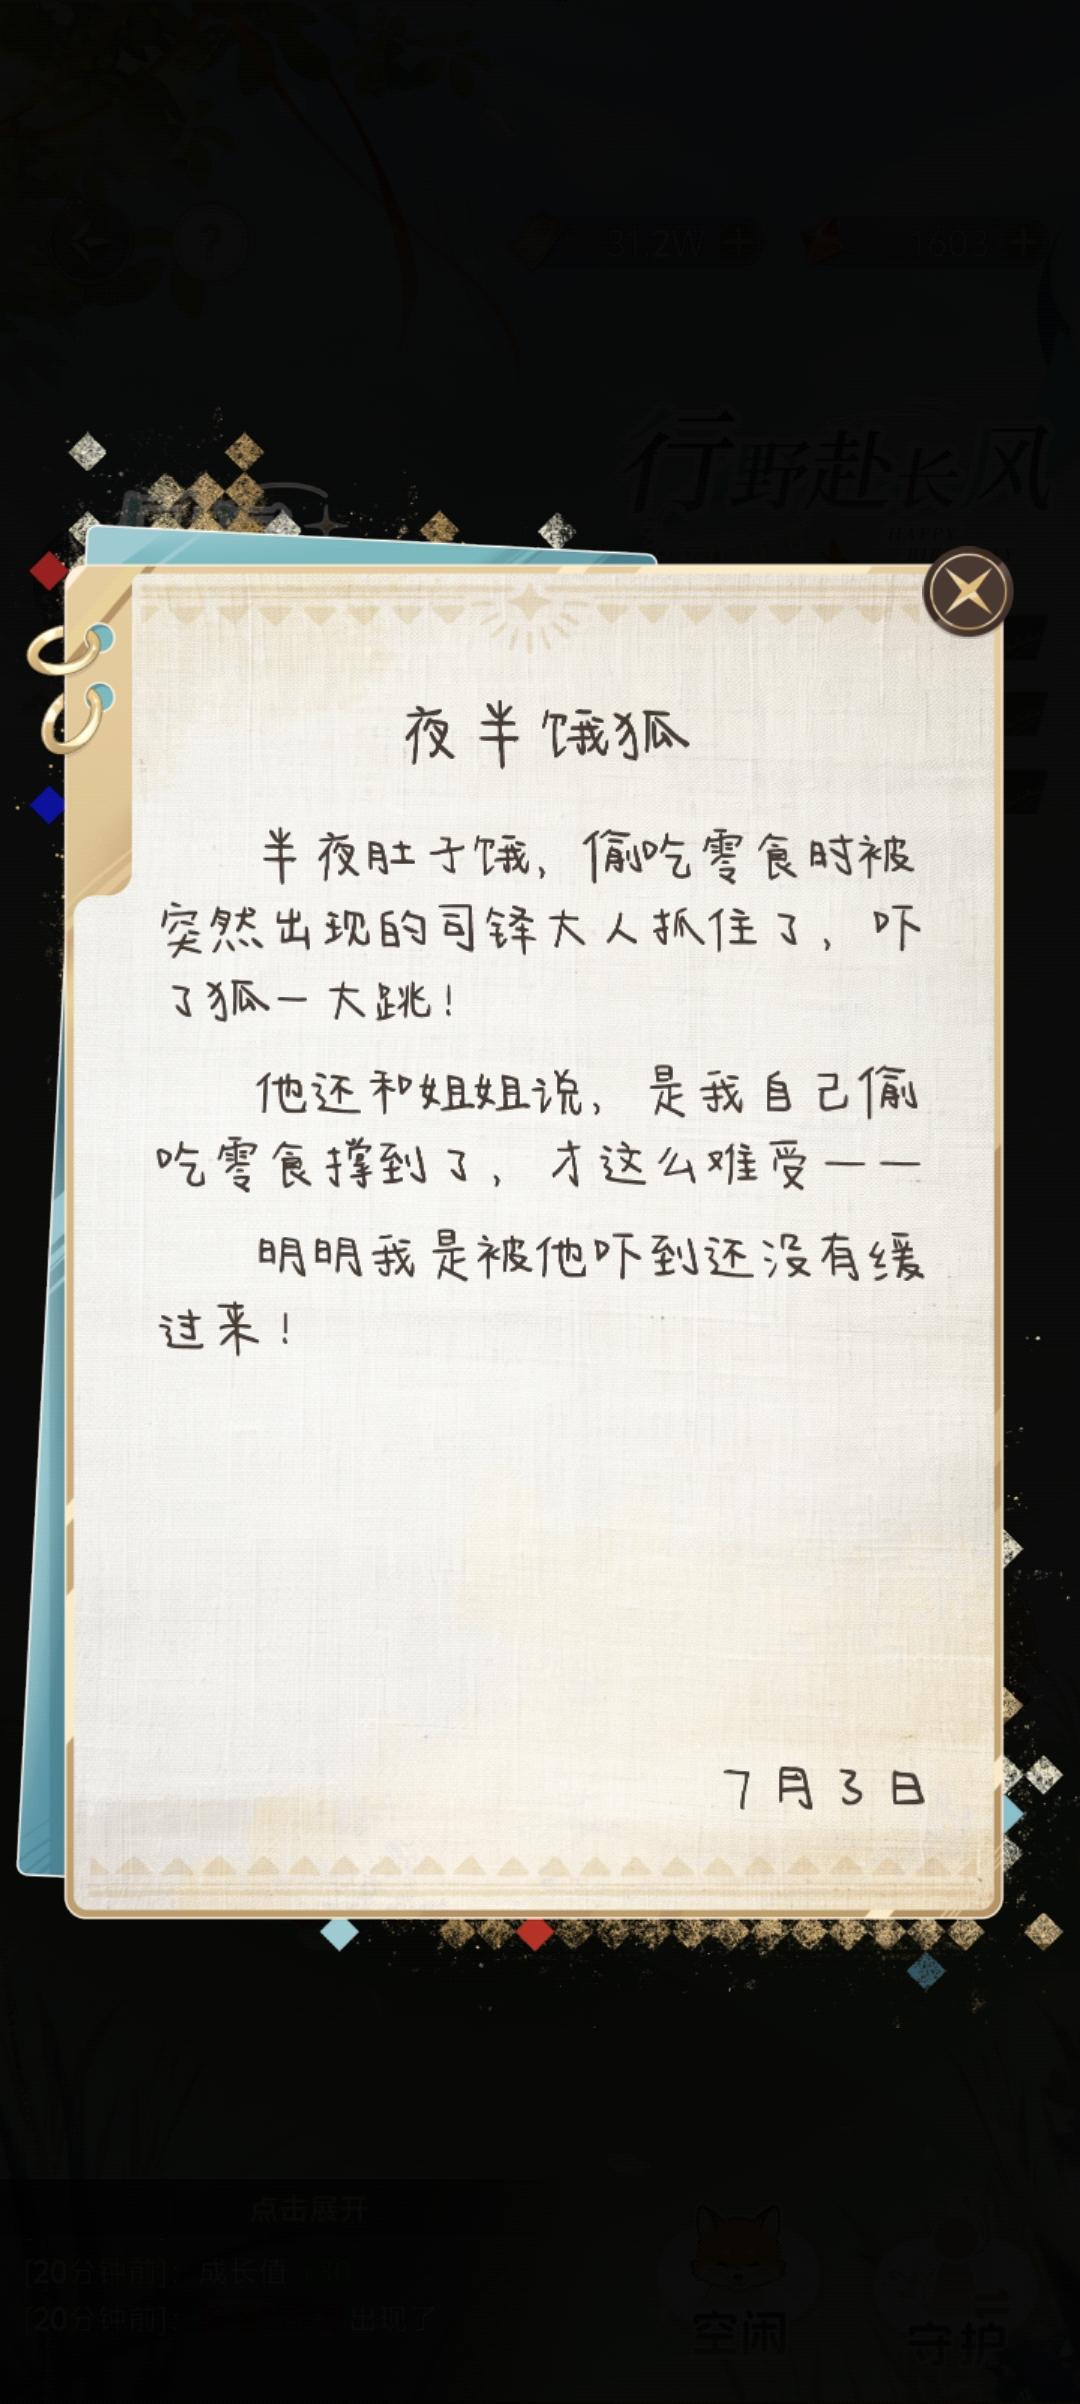 31.2W
1603
行野赴长风
HAPPY
夜半饿狐
半夜肚子饿，偷吃零食时被
突然出现的司铎大人抓住了，吓
了狐一大跳！
他还和姐姐说，是我自己偷
吃零食撑到了，才这么难受——
明明我是被他吓到还没有缓
过来！
7月3日
点击展开
[20分钟前]：成长值 +30
[20分钟前]： 出现了
空闲
守护